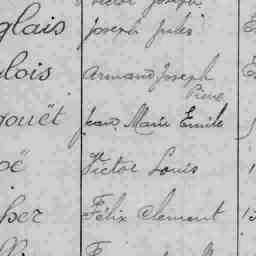 Victor Joseph
glais Joseph Jules
lois Armand Joseph
Pierre
gouët Jean Marie Emile
oë Victor Louis
her Félix Clement